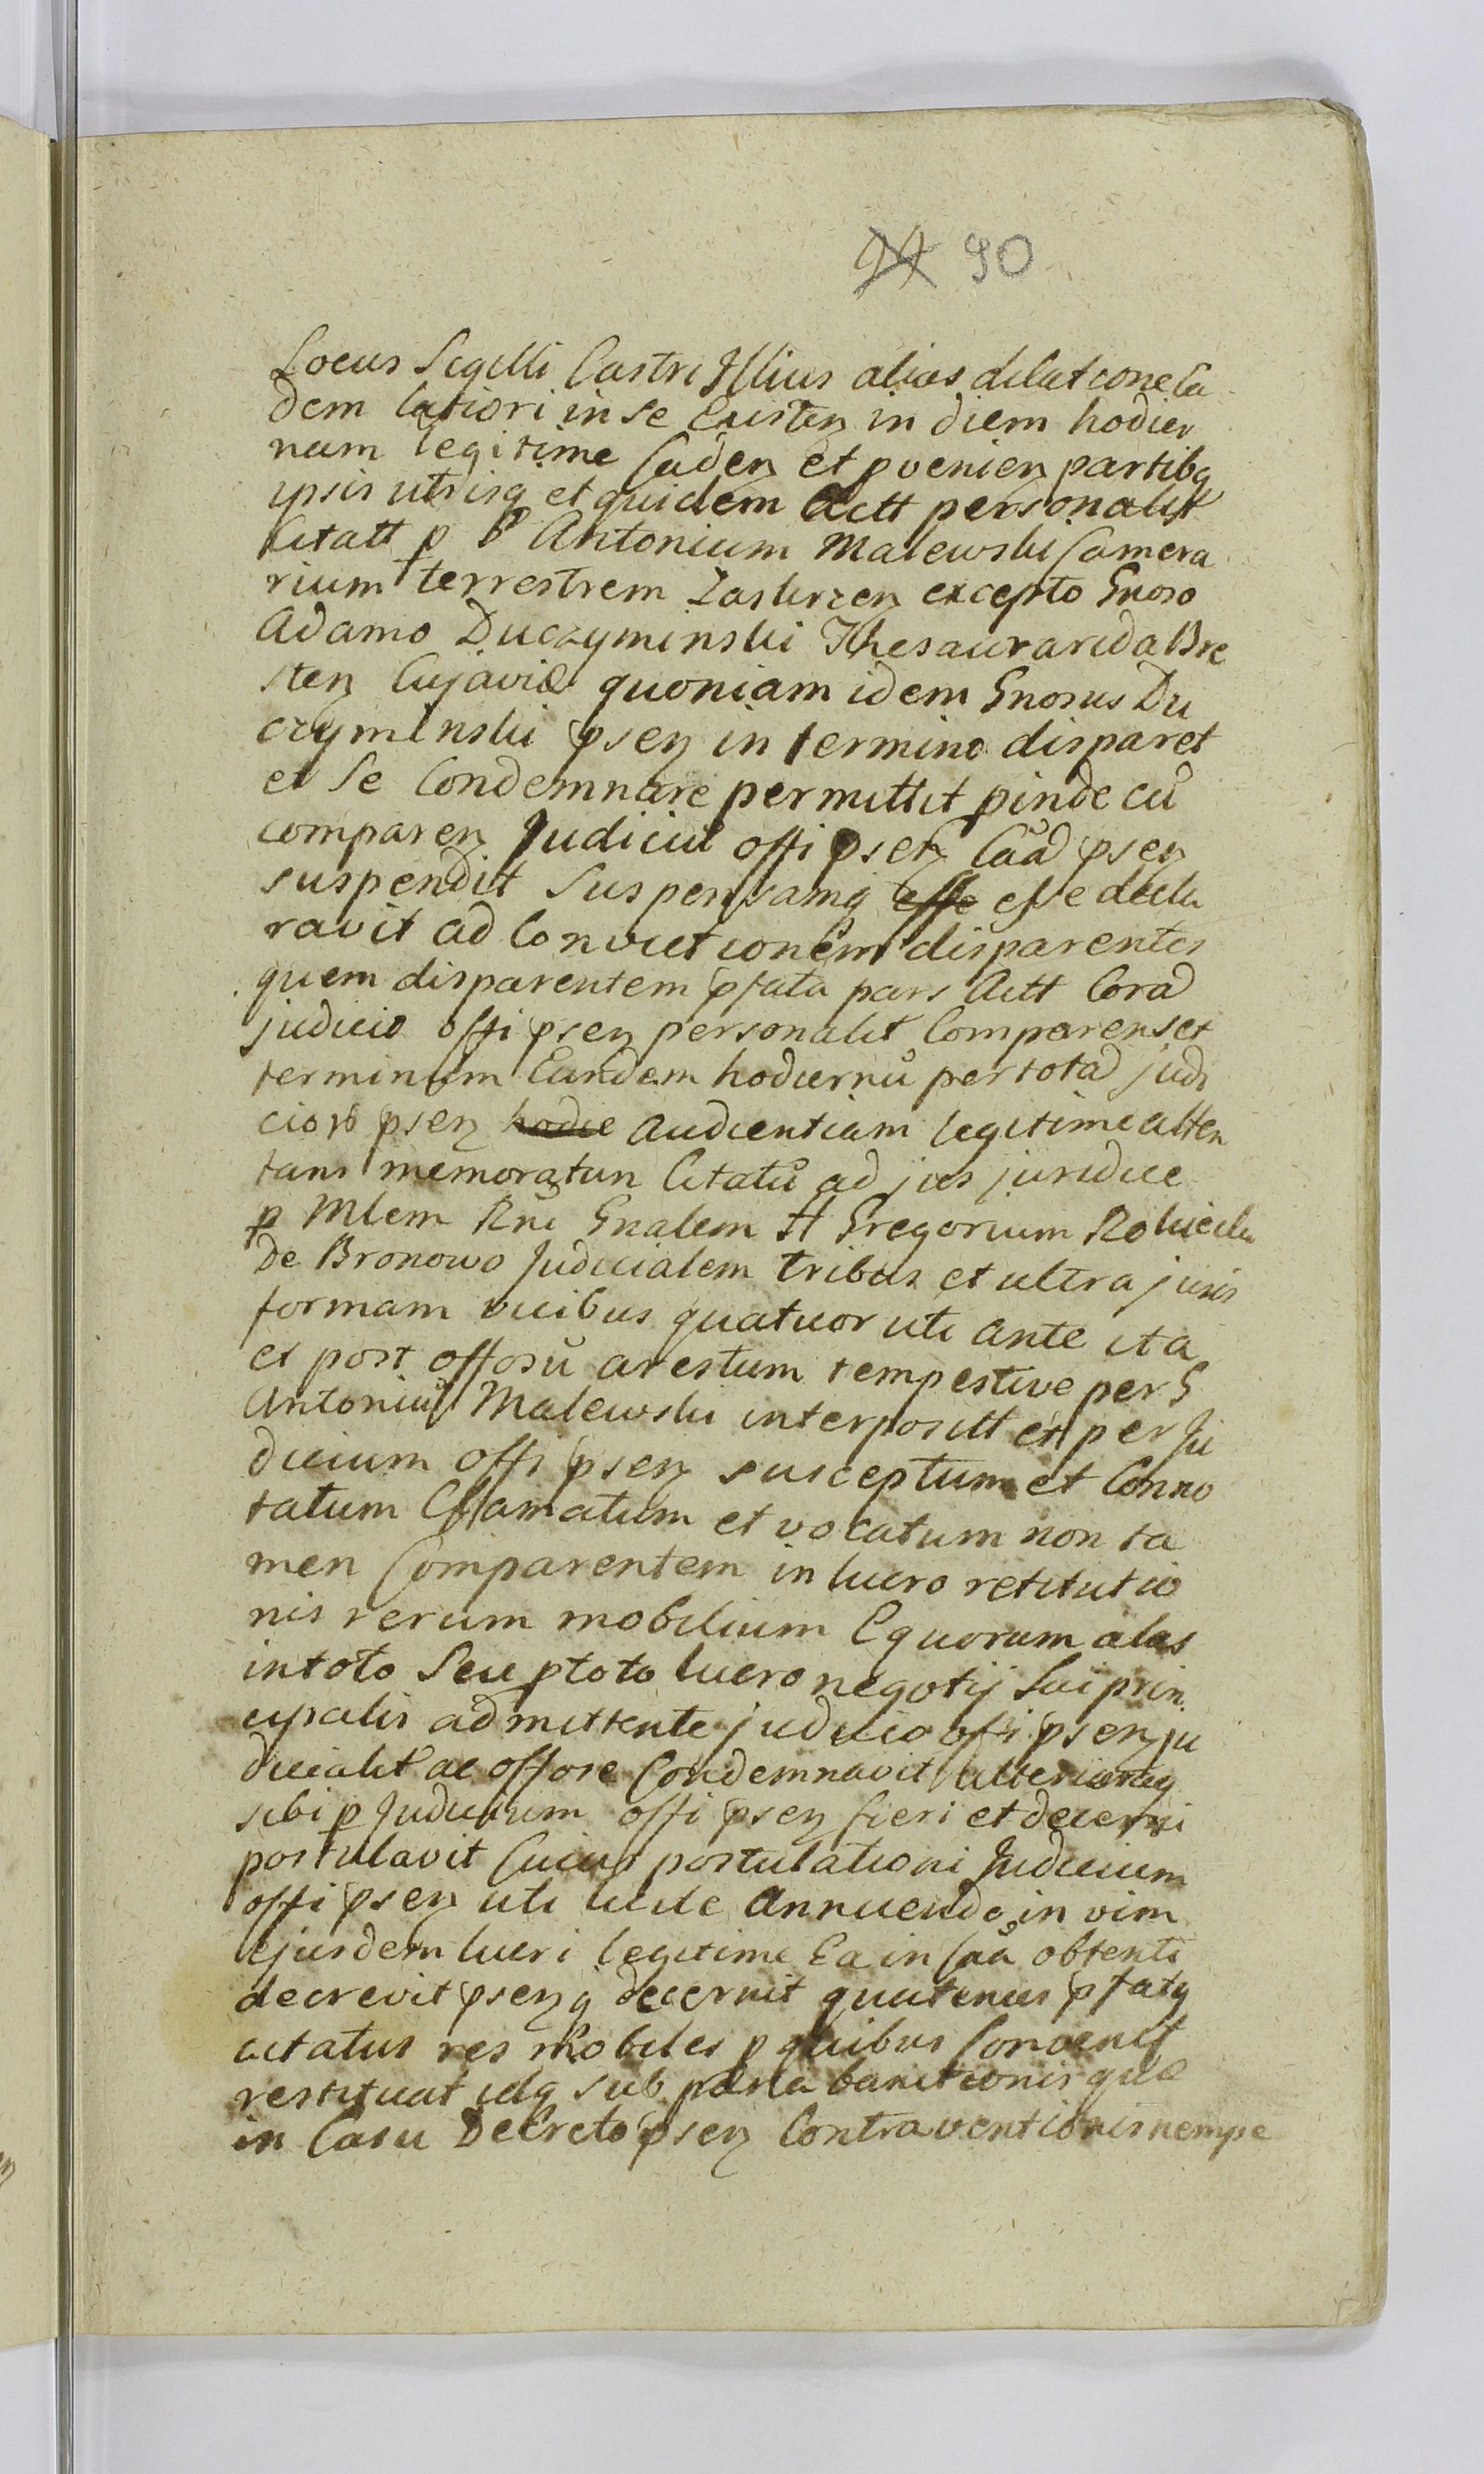 90
Locus Sigilli Castri Illius alias dilatione ea
dem latiori in se Existen in diem hodier
nam legitime Caden et pvenien partibq
ipsis utrisq et quidem Actt personalit
Citatt p G Antonium Malewski Camera
rium terrestrem Zaskrzen excepto Gnoso
Adamo Duczyminski Thesaurarida Bre
sten Cujaviæ quoniam idem Gnosus Du
czyminski psen in termino disparet
et se Condemnare permittit pinde cū
comparen Judiciū offi psen Caā psen
suspendit Suspensamq esse decla
ravit ad Convictionem disparentis
quem disparentem pfata pars Actt Corā
judicio offi psen personalit Comparens et
terminum Eundem hodiernū per totā judi
cior psen hodie audientiam legitime atten
tans memoratun Citatū ad jus juridice
p Mlem Rni Gnalem H Gregorium
de Bronowo Judicialem tribus et ultra juris
formam vicibus quatuor uti ante ita
et post offosū arestum tempestive per G
Antoniū Malewski interpositt et per Ju
dicium offi psen susceptum et Conno
tatum Clamatum et vocatum non ta
men Comparentem in lucro retitutio
nis rerum mobilium Equorum alas
in toto Seu ptoto lucro negotij sui prin
cipalis admittente judicio offi psen ju
dicialit ac offose Condemnavit
sibi p Judicium offi psen fieri et decerni
postulavit Cuius postulationi Judicium
offi psen uti annuendo in vim
ejusdem lucri legitime Ea in Caā obtenti
decrevit psenq decernit quatenus pfatq
citatus res mobiles p quibus Convenit
restituat idq sub pœna banitionis quæ
in Casu Decreto psen Contraventionis nempe